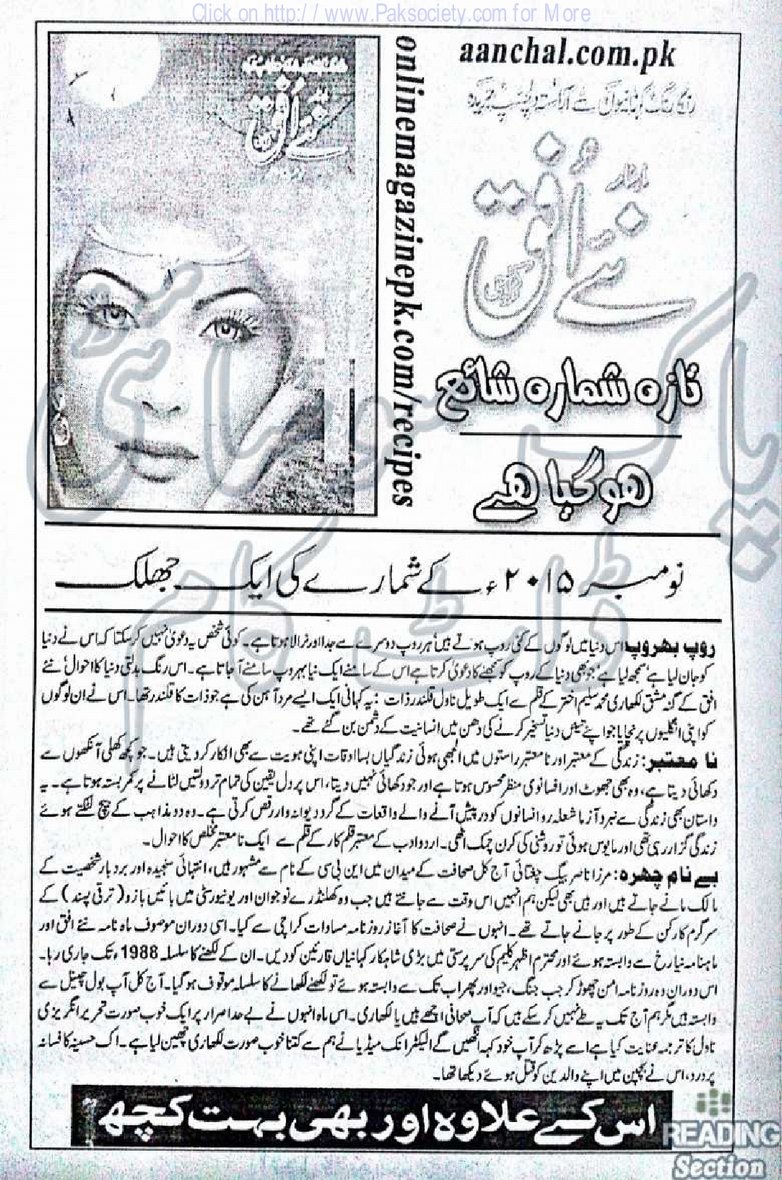 Click on http://www.Paksociety.com for More
aanchal.com.pk
onlinemagazinepk.com/recipes
نئے اُفق
نئے اُفق
کراچی
تازہ شمارہ شائع
ہوگیا ہے
نومبر ۲۰۱۵ء کے شمارے کی ایک جھلک
روپ بھروپ: اس دنیا میں لوگوں کے کئی روپ ہوتے ہیں ہر روپ دوسرے سے جدا اور نرالا ہوتا ہے۔ کوئی شخص یہ دعویٰ نہیں کرسکتا کہ اس نے دنیا
کو جان لیا ہے، سمجھ لیا ہے، جو بھی دنیا کے روپ کو سمجھنے کا دعویٰ کرتا ہے اس کے سامنے ایک نیا بہروپ سامنے آجاتا ہے۔ اس رنگ بدلتی دنیا کا احوال نئے
افق کے کہنہ مشق لکھاری محمد سلیم اختر کے قلم سے ایک طویل ناول قلندر ذات یہ کہانی ایک ایسے مرد آہن کی ہے جو ذات کا قلندر تھا۔ اس نے ان لوگوں
کو اپنی انگلیوں پر نچایا جو اپنے تئیں دنیا تسخیر کرنے کی دھن میں انسانیت کے دشمن بن گئے تھے۔
نا معتبر: زندگی کے معتبر اور نامعتبر راستوں میں الجھی ہوئی زندگیاں بسا اوقات اپنی ہویت سے بھی انکار کردیتی ہیں۔ جو کچھ کھلی آنکھوں سے
دکھائی دیتا ہے، وہ بھی جھوٹ اور افسانوی منظر محسوس ہوتا ہے اور جو دکھائی نہیں دیتا، اس پر دل یقین کی تمام تر دولتیں لٹانے پر کمر بستہ ہوتا ہے۔ یہ
داستان بھی زندگی سے نبرد آزما شعلہ رو انسانوں کو درپیش آنے والے واقعات کے گرد دیوانہ وار رقص کرتی ہے۔ وہ دو مذاہب کے بیچ لٹکتے ہوئے
زندگی گزار رہی تھی اور مایوس ہوئی تو روشنی کی کرن چمک اٹھی۔ اردو ادب کے معتبر قلم کار کے قلم سے ایک نامعتبر شخص کا احوال۔
بے نام چہرہ: مرزا ناصر بیگ چغتائی آج کل صحافت کے میدان میں این بی سی کے نام سے مشہور ہیں، انتہائی سنجیدہ اور بردبار شخصیت کے
مالک مانے جاتے ہیں اور ہیں بھی لیکن ہم انہیں اس وقت سے جانتے ہیں جب وہ کھلنڈرے نوجوان اور یونیورسٹی میں بائیں بازو (ترقی پسند) کے
سرگرم کارکن کے طور پر جانے جاتے تھے۔ انہوں نے صحافت کا آغاز روزنامہ مساوات کراچی سے کیا۔ اسی دوران موصوف ماہ نامہ نئے افق اور
ماہنامہ نیا رخ سے وابستہ ہوئے اور محترم اظہر کلیم کی سرپرستی میں بڑی شاہکار کہانیاں قارئین کو دیں۔ ان کے لکھنے کا سلسلہ 1988ء تک جاری رہا۔
اس دوران وہ روزنامہ امن چھوڑ کر جب جنگ، جیو اور پھر اب تک سے وابستہ ہوئے تو لکھنے لکھانے کا سلسلہ موقوف ہوگیا۔ آج کل آپ بول چینل سے
وابستہ ہیں مگر ہم آج تک یہ طے نہیں کرسکے ہیں کہ آپ صحافی اچھے ہیں یا لکھاری۔ اس ماہ انہوں نے بے حد اصرار پر ایک خوب صورت تحریر انگریزی
ناول کا ترجمہ عنایت کیا ہے اسے پڑھ کر آپ خود کہہ اٹھیں گے الیکٹرانک میڈیا نے ہم سے کتنا خوب صورت لکھاری چھین لیا ہے۔ اک حسینہ کا فسانہ
پر درد، اس نے بچپن میں اپنے والدین کو قتل ہوئے دیکھا تھا۔
اس کے علاوہ اور بھی بہت کچھ
READING
Section
پاک سوسائٹی
ڈاٹ کام